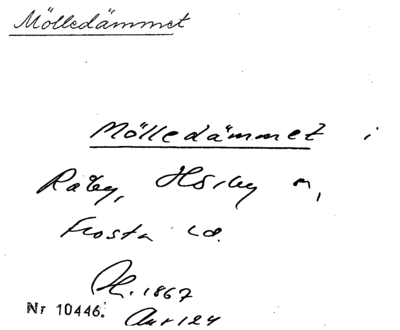 Mölledämmet
Mölledämmet i
Råby, Hörby n,
Frosta hd.
1867
Nr 10446.